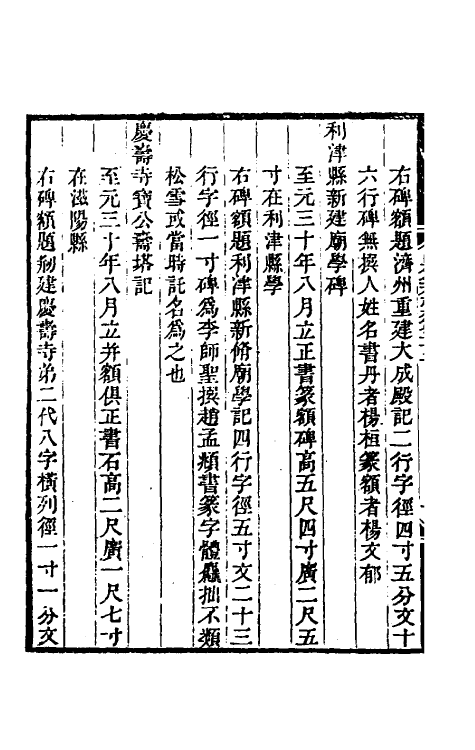 右碑額題濟州重建大成殿記二行字徑四寸五分文十
六行碑無撰人姓名書丹者楊桓篆額者楊文郁
利津縣新建廟學碑
至元三十年八月立正書篆額碑高五尺四寸廣二尺五
寸在利津縣學
右碑額題利津縣新脩廟學記四行字徑五寸文二十三
行字徑一寸碑爲李師聖撰趙孟頫書篆字體麤拙不類
松雪或當時託名爲之也
慶壽寺寶公齋塔記
至元三十年八月立并額俱正書石高二尺廣一尺七寸
在滋陽縣
右碑額題刱建慶壽寺弟二代八字橫列徑一寸一分文